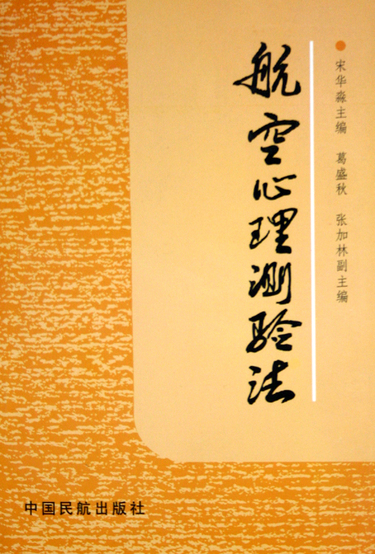 宋华淼主编 葛盛秋 张加林副主编
航空心理测验法
中国民航出版社